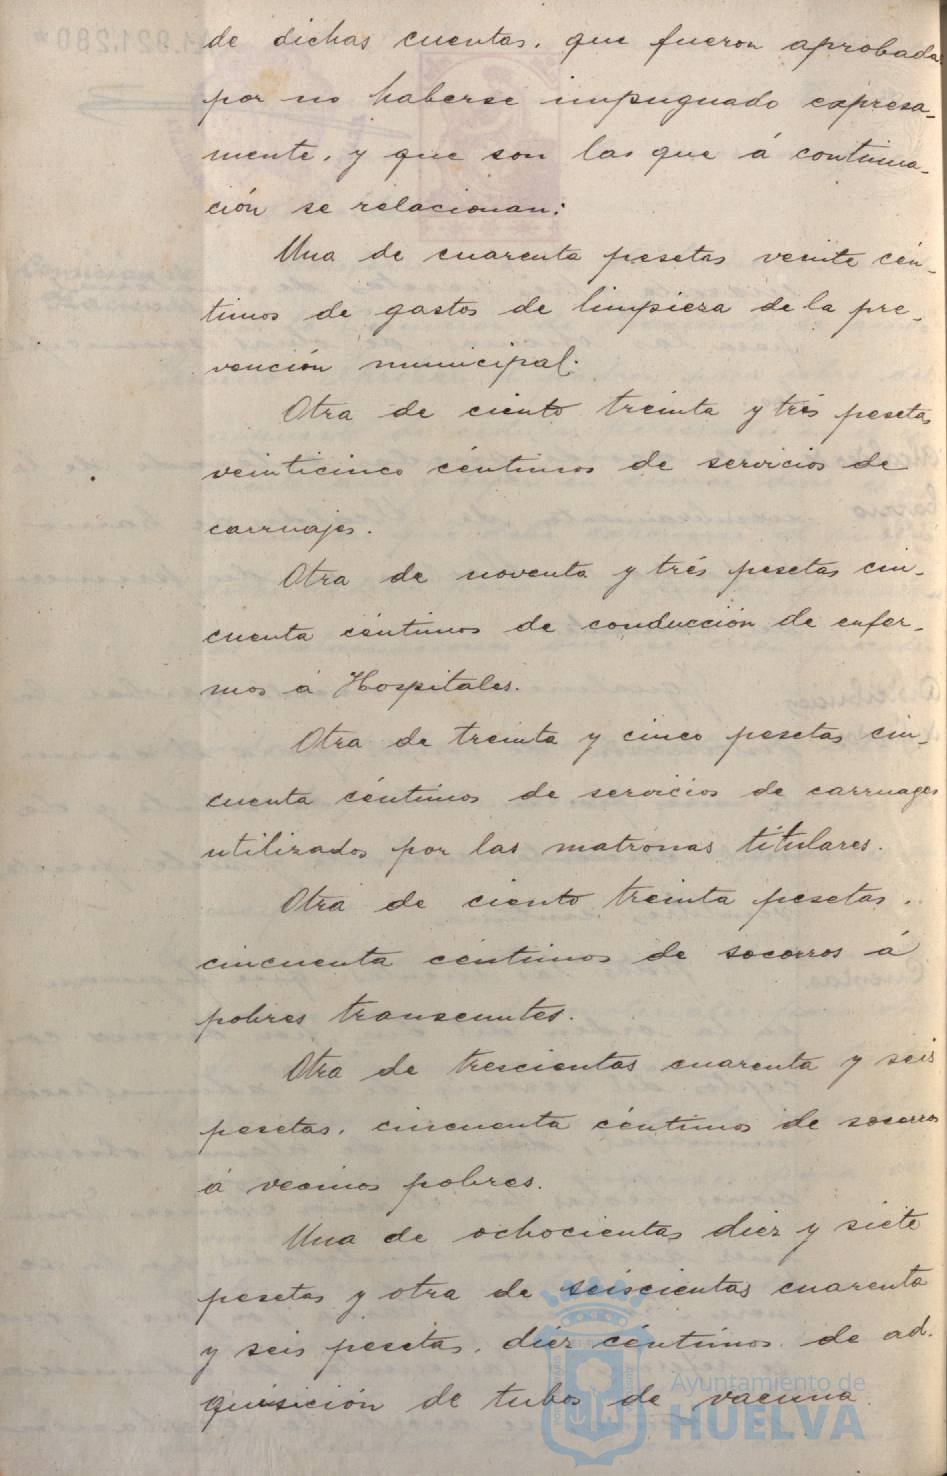 de dichas cuentas. que fueron aprobadas
por no haberse impugnado expresa-
mente, y que son las que á continua-
ción se relacionan:
Una de cuarenta pesetas veinte cén-
timos de gastos de limpieza de la pre-
vención municipal.
Otra de ciento treinta y trés pesetas
veinticinco céntimos de servicios de
carruajes.
Otra de noventa y trés pesetas cin-
cuenta céntimos de conducción de enfer-
mos á Hospitales.
Otra de treinta y cinco pesetas cin-
cuenta céntimos de servicios de carruages
utilizados por las matronas titulares.
Otra de ciento treinta pesetas.
cincuenta céntimos de socorros á
pobres transeuntes.
Otra de trescientas cuarenta y seis
pesetas. cincuenta céntimos de socorros
á vecinos pobres.
Una de ochocientas diez y siete
pesetas y otra de seiscientas cuarenta
y seis pesetas. diez céntimos. de ad-
quisición de tubos de vacuna.
Ayuntamiento de
HUELVA